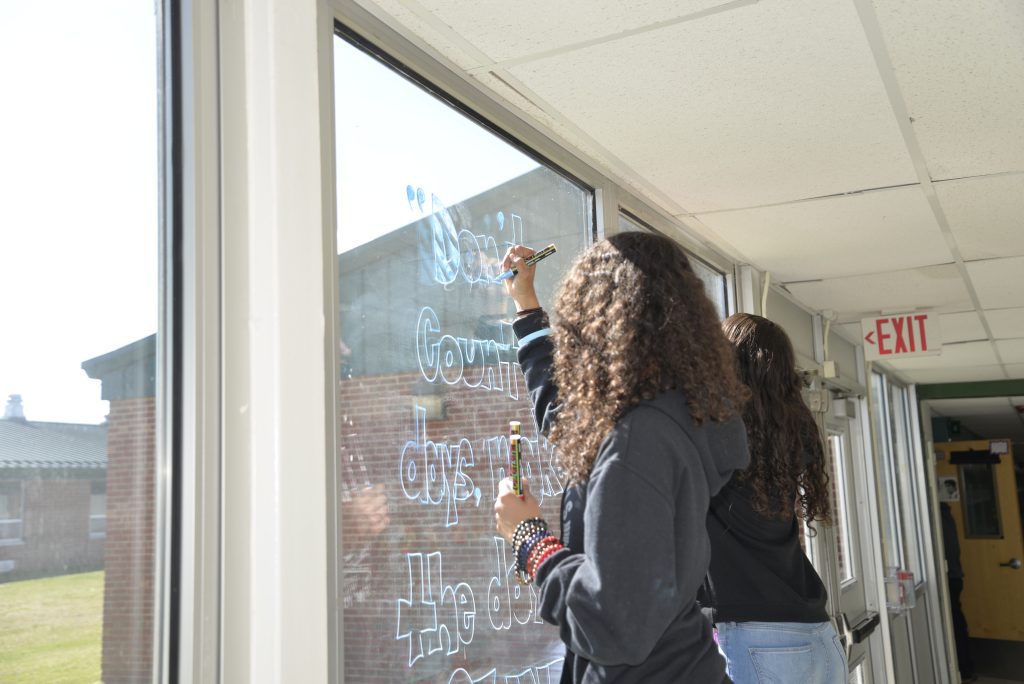 "Don't
Count
days, make
the
<EXIT